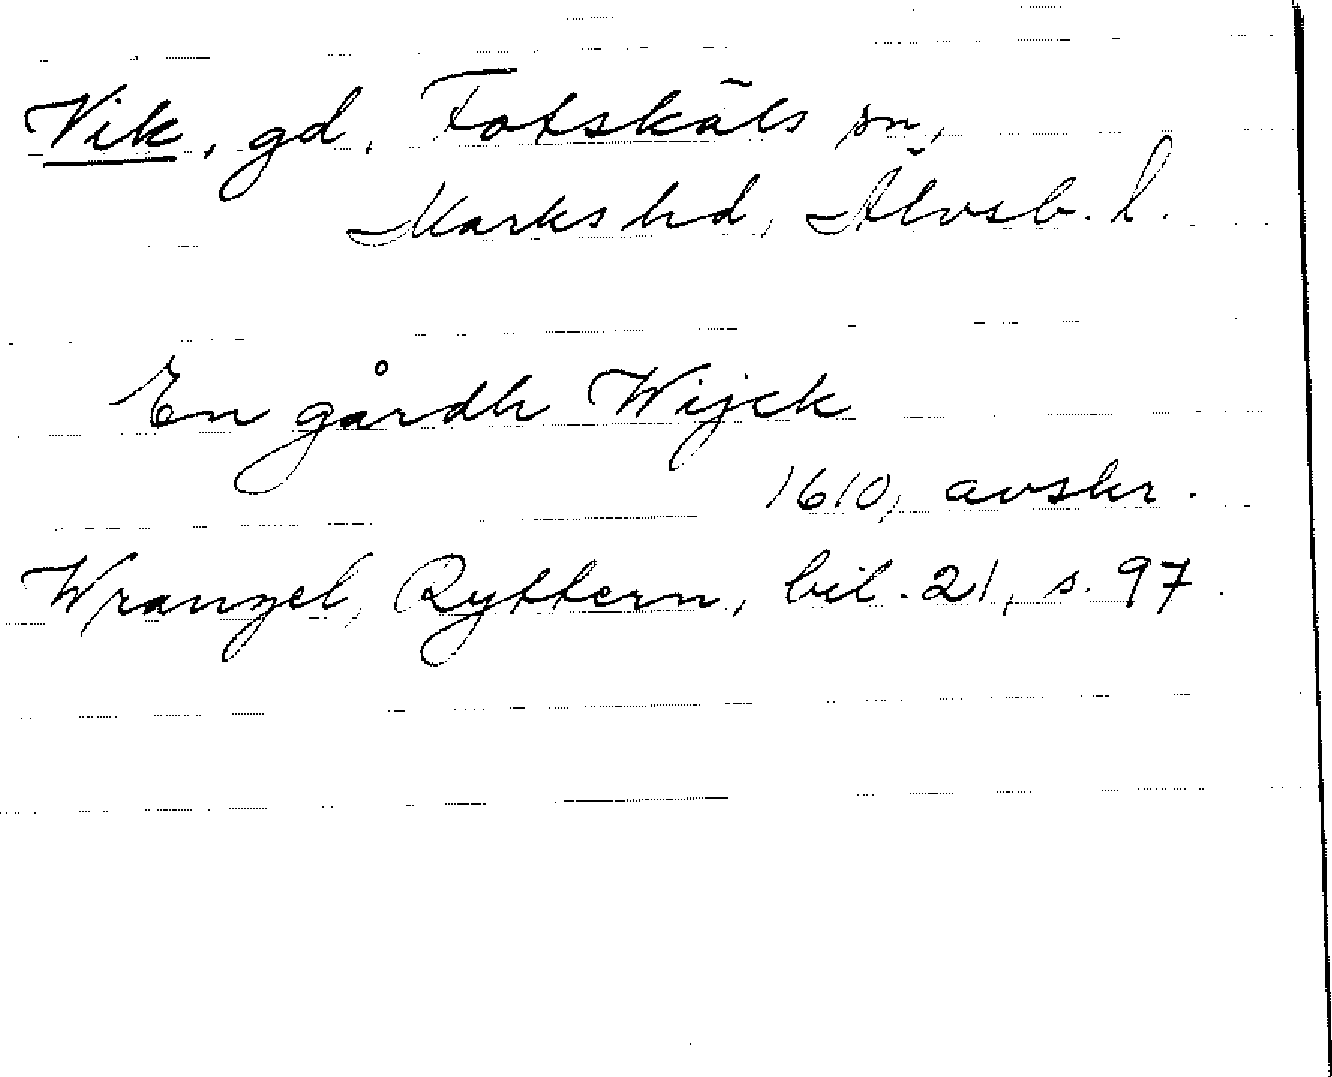 Vik, gd, Fotskäls sn,
Marks hd, Älvsb. l.
En gårdh Wijck
1610, avskr.
Wranzel, Ryttern, bil. 21, s. 97.